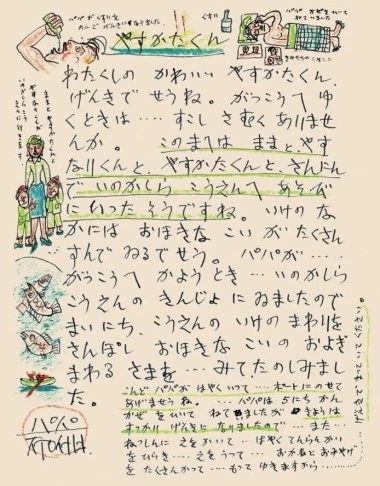 パパがくすりを
のんでげんきになりました
くすり
パパがかぜをひいて
ねていました
やすかたくん
わたくしの かわいい やすかたくん、
げんきでせうね。がっこうへ ゆ
くときは…… すこし さむく ありませ
んか。 このまへは ままと、やす
なりくんと、やすかたくんと、さんにん
で いのかしら こうえんへ あそび
に いった そうですね。 いけの な
かには おほきな こいが たくさん
すんで ゐるでせう。 パパが……
がっこうへ かようとき… いのかしら
こうえんの きんじょに ゐましたので
まいにち、こうえんの いけの まわりを
さんぽし おほきな こいの およぎ
まわる さまを… みて たのしみまし
た。
こんど パパが はやくいって…… ボートにのせて
あげませうね。 …… パパは 5にちかん
かぜを ひいて ねて ゐましたが きょうは
すっかり げんきに なりましたので…… また…
ねっしんに えをかいて…… はやく てんらんかい
をひらき…… えをうって…… おかねと おみやげ
を たくさん かって…… もって ゆきますから
げんきで まっていて ください。
ままとやすかたくんと
やすなりくんが
パパ